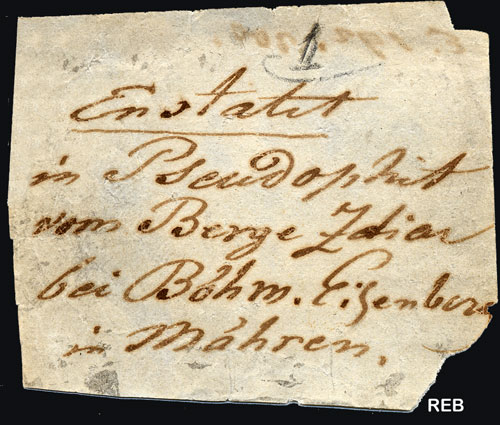 1
Enstatit
in Pseudophit
vom Berge Zdiar
bei Böhm. Eisenberg
in Mähren.
REB